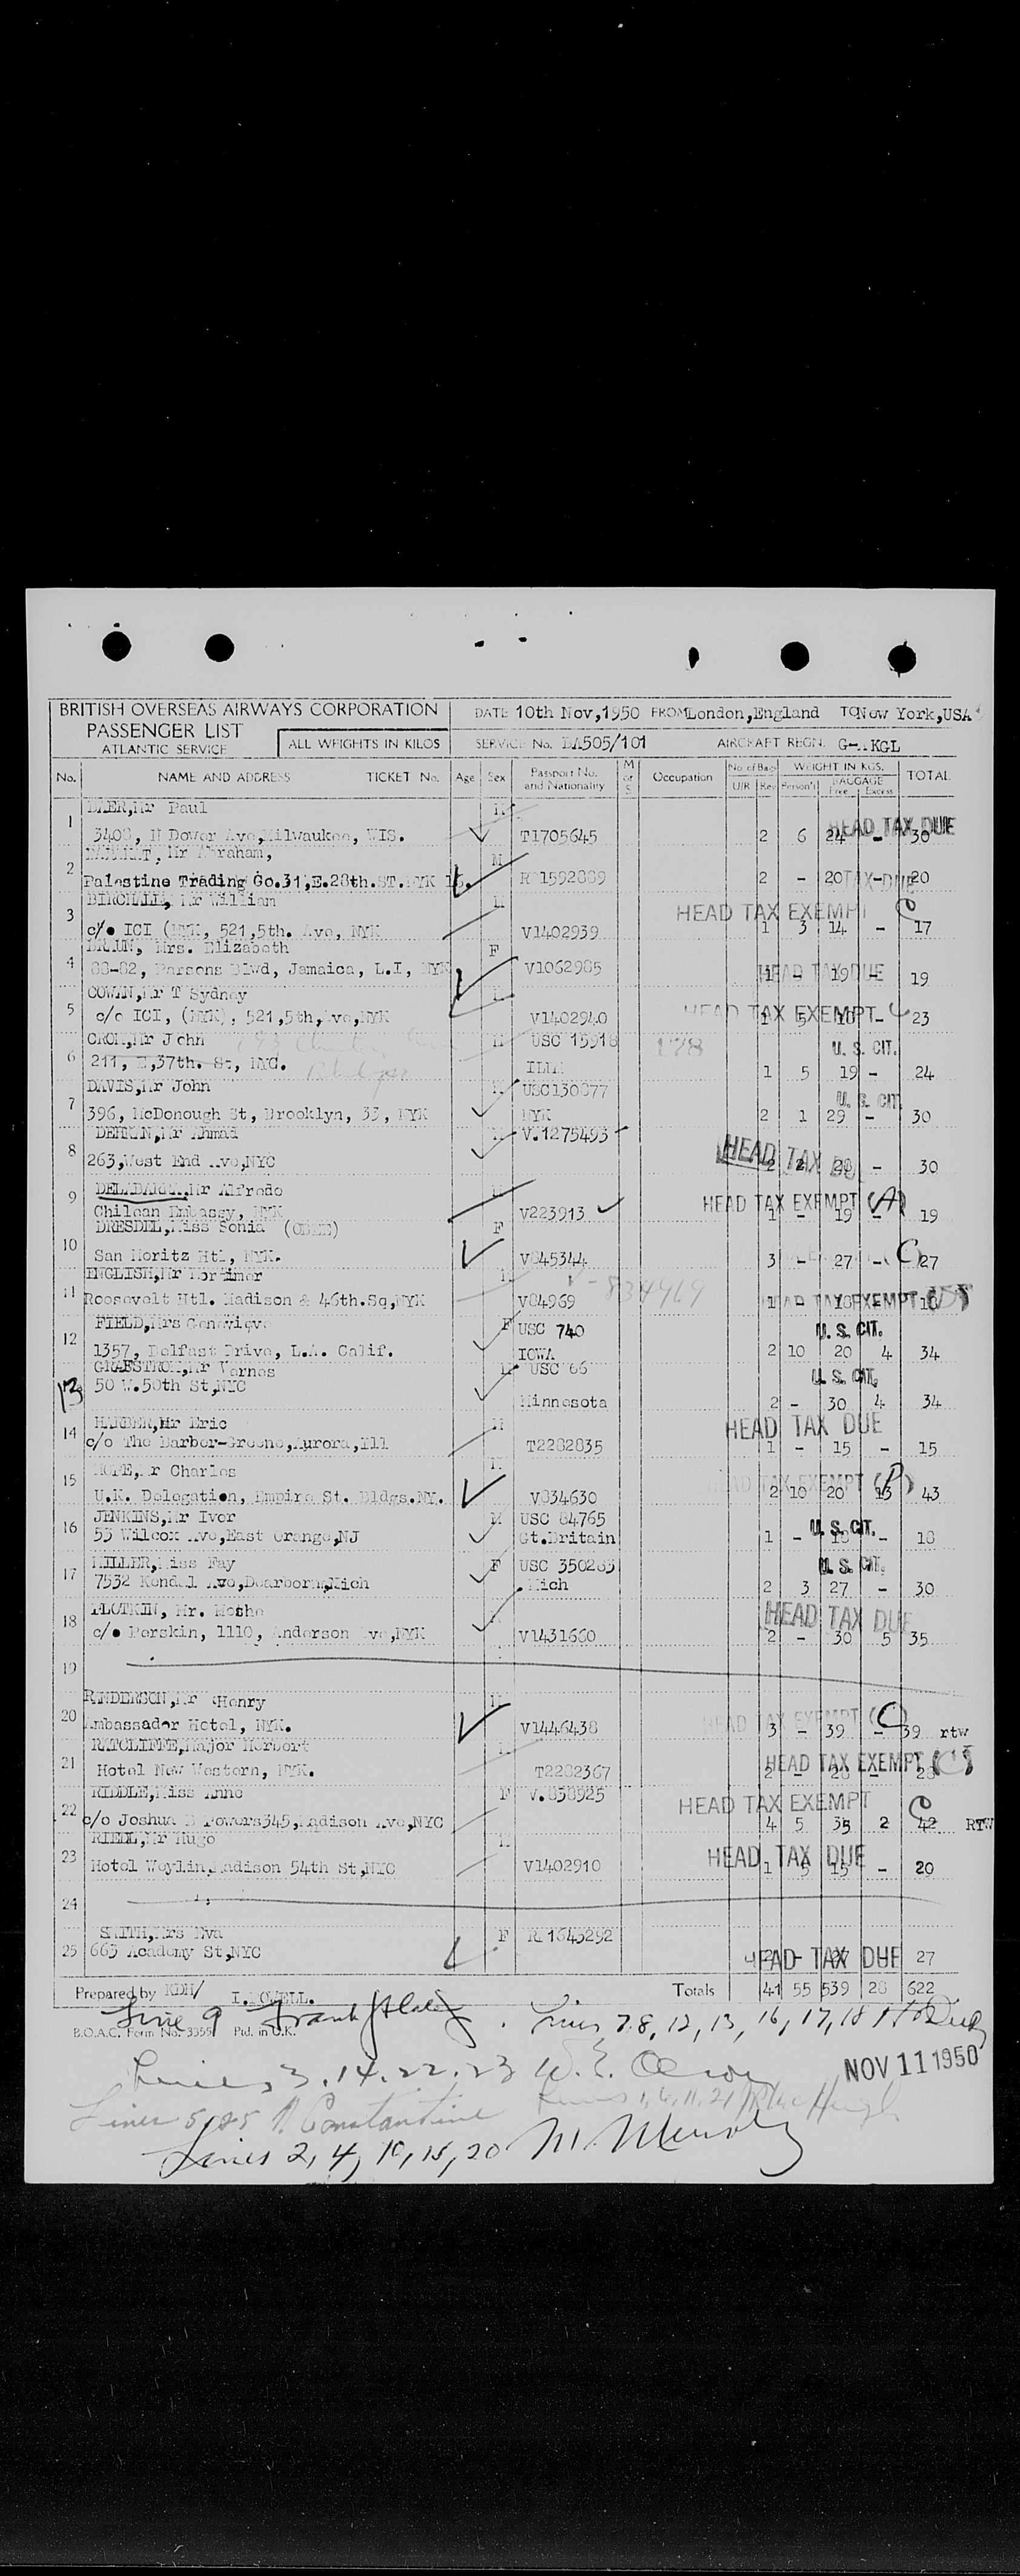 BRITISH OVERSEAS AIRWAYS CORPORATION
PASSENGER LIST
ATLANTIC SERVICE
ALL WEIGHTS IN KILOS
DATE 10th Nov,1950 FROM London,England TO New York,USA
SERVICE No. BA505/101 AIRCRAFT REGN. G- KGL
No. NAME AND ADDRESS TICKET No. Age Sex Passport No. and Nationality M or S Occupation No. of Bags U/R Reg WEIGHT IN KGS. Person'l BAGGAGE Free Excess TOTAL
1 Mr Paul M
3408, N Dover Ave,Milwaukee, WIS. T1705645 2 6 24 - 30 HEAD TAX DUE
2 Mr Abraham, M
Palestine Trading Co.31,E.28th.ST.NYK 16. 1592889 2 - 20 - 20 TAX DUE
3 BIRCHALL, Mr William M HEAD TAX EXEMPT C
c/o ICI (NYK, 521,5th. Ave, NYK V1402939 1 3 14 - 17
4 Mrs. Elizabeth F
88-82, Parsons Blvd, Jamaica, L.I, NYK V1062985 1 - 19 - 19 HEAD TAX DUE
5 COWAN,Mr T Sydney M
c/o ICI, (NYK), 521,5th,Ave,NYK V1402940 1 5 18 - 23 HEAD TAX EXEMPT C
6 Mr John M USC 15918 178 U. S. CIT.
211, E,37th. St, NYC. 1 5 19 - 24
7 DAVIS,Mr John M USC130877 U. S. CIT.
396, McDonough St, Brooklyn, 33, NYK NYK 2 1 29 - 30
8 Mr Ahmad M V.1275493
263,West End Ave,NYC 2 2 28 - 30 HEAD TAX DUE
9 Mr Alfredo M HEAD TAX EXEMPT (A)
Chilean Embassy, NYK V223913 1 - 19 - 19
10 DRESDEL,Miss Sonia (OBEE) F
San Moritz Htl, NYK. V845344 3 - 27 - 27 (C)
11 ENGLISH,Mr Mortimer M V-834969
Roosevelt Htl. Madison & 46th.Sq,NYK V84969 1 - 18 - 18 HEAD TAX EXEMPT
12 FIELD,Mrs Genevieve F USC 740 U. S. CIT.
1357, Belfast Drive, L.A. Calif. IOWA 2 10 20 4 34
13 Mr Varnes M USC 66 U. S. CIT.
50 W.50th St,NYC Minnesota 2 - 30 4 34
14 Mr Eric M HEAD TAX DUE
c/o The Barber-Greene,Aurora,Ill T2282835 1 - 15 - 15
15 HOPE,Mr Charles M HEAD TAX EXEMPT
U.K. Delegation, Empire St. Bldgs.NY. V834630 2 10 20 13 43
16 JENKINS,Mr Ivor M USC 84765 U. S. CIT.
55 Wilcox Ave,East Orange,NJ Gt.Britain 1 - 18 - 18
17 MILLER,Miss Fay F USC 350283 U. S. CIT.
7532 Kendal Ave,Dearborn,Mich Mich 2 3 27 - 30
18 PLOTKIN, Mr. Moshe HEAD TAX DUE
c/o Perskin, 1110, Anderson Ave,NYK V1431660 2 - 30 5 35
19
20 RANDERSON,Mr Henry M
Ambassador Hotel, NYK. V1446438 3 - 39 - 39 rtw HEAD TAX EXEMPT (C)
21 RATCLIFFE,Major Herbert M
Hotel New Western, NYK. T2282367 2 - 28 - 28 HEAD TAX EXEMPT (C)
22 RIDDLE,Miss Anne F V.858525 HEAD TAX EXEMPT C
c/o Joshua B Powers345,Madison Ave,NYC 4 5 35 2 42 RTW
23 RIEDL,Mr Hugo M
Hotel Weylin,Madison 54th St,NYC V1402910 1 5 15 - 20 HEAD TAX DUE
24
25 SMITH,Mrs Eva F 1643292
663 Academy St,NYC 2 - 27 - 27 HEAD TAX DUE
Prepared by KDH/ Totals 41 55 539 28 622
Line 9 Frank
Lines 7,8, 12, 13, 16, 17, 18
B.O.A.C. Form No. 3355 Ptd. in U.K.
Lines 3. 14. 22. 23 W. E.
NOV 11 1950
Lines 5, 25 Constantine
Lines 1, 6, 11, 21
Lines 2, 4, 10, 15, 20